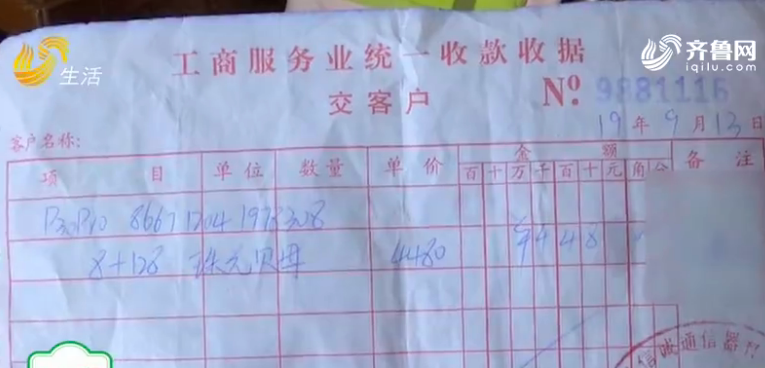 生活
齐鲁网
iqilu.com
工商服务业统一收款收据
交客户
No. 9881116
19年9月13日
客户名称:
项目 单位 数量 单价 金额 备注
百十万千百十元角分
P30Pro 8667 1204 1973308
8+128 珠光贝母 4480 ¥ 4 4 8
诚通信器